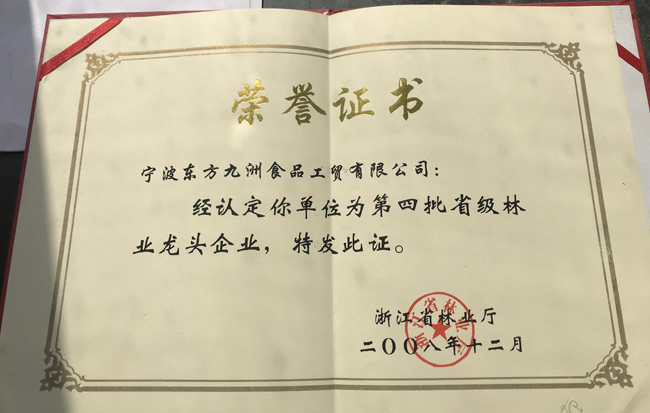 荣誉证书
宁波东方九洲食品工贸有限公司：
经认定你单位为第四批省级林
业龙头企业，特发此证。
浙江省林业厅
二〇〇八年十二月
浙江省林业厅